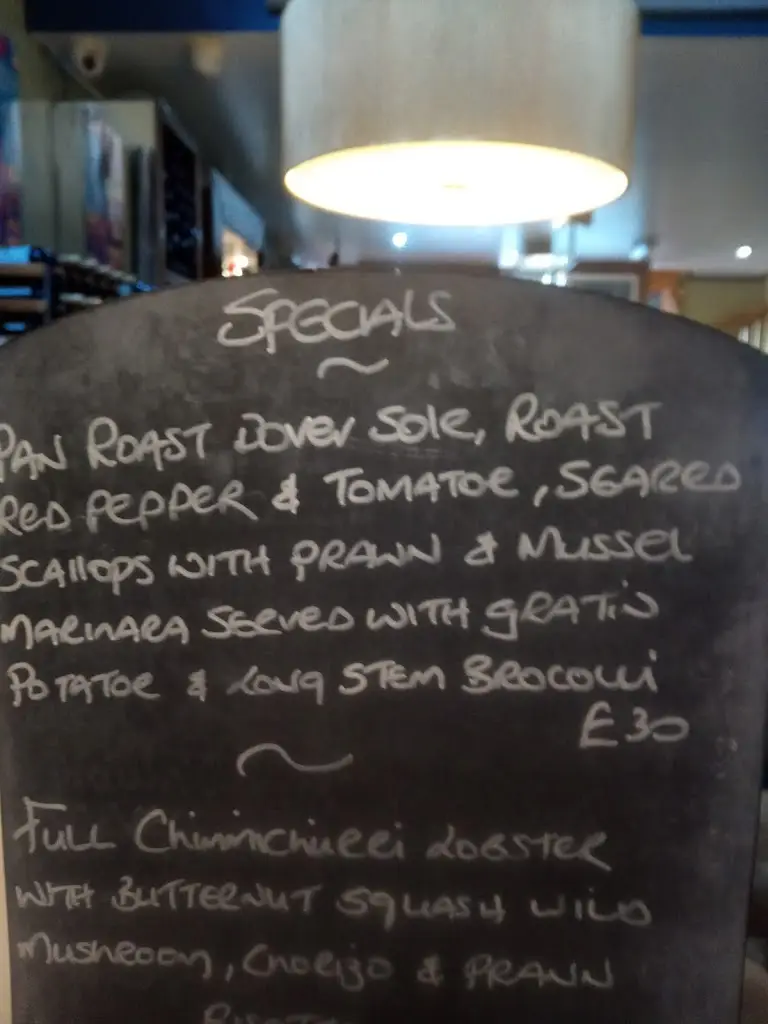 SPECIALS
~
PAN ROAST DOVER SOLE, ROAST
RED PEPPER & TOMATOE, SEARED
SCALLOPS WITH PRAWN & MUSSEL
MARINARA SERVED WITH GRATIN
POTATOE & LONG STEM BROCOLLI
£30
~
FULL LOBSTER
WITH BUTTERNUT SQUASH WILD
MUSHROOM, CHORIZO & PRAWN